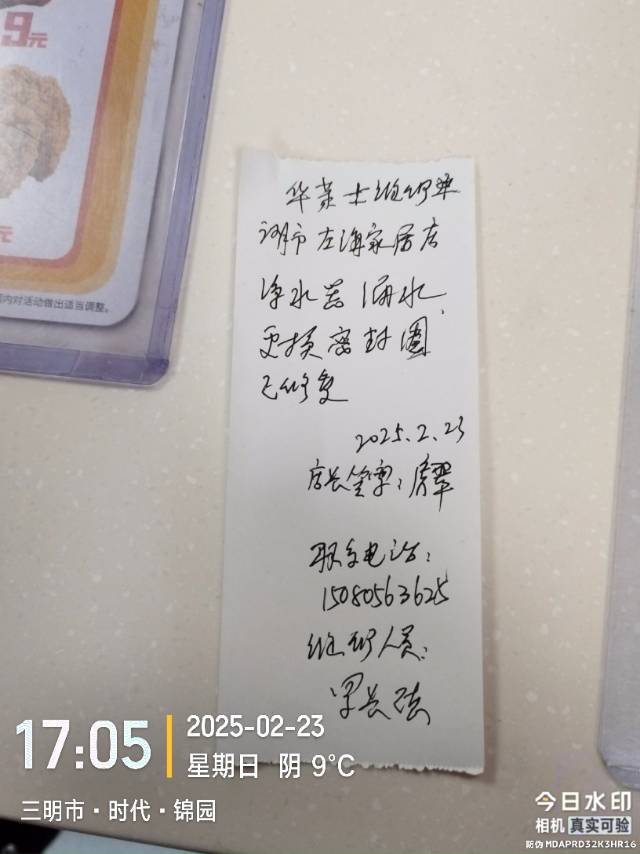 9元
元
内对活动做出适当调整。
华莱士维修单
左海家居店
净水器漏水、
更换密封圈
已修复
2025.2.23
店长签字：
联系电话：
15080563625
维修人员：
17:05
2025-02-23
星期日 阴 9℃
三明市·时代·锦园
今日水印
相机 真实可验
防伪 MDAPRD32K3HR16